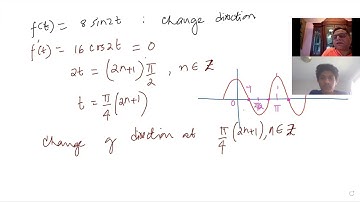 f(t) = 8 sin2t : change direction
f'(t) = 16 cos2t = 0
2t = (2n+1) π/2 , n ∈ Z
t = π/4 (2n+1)
0 π
change of direction at π/4 (2n+1), n ∈ Z